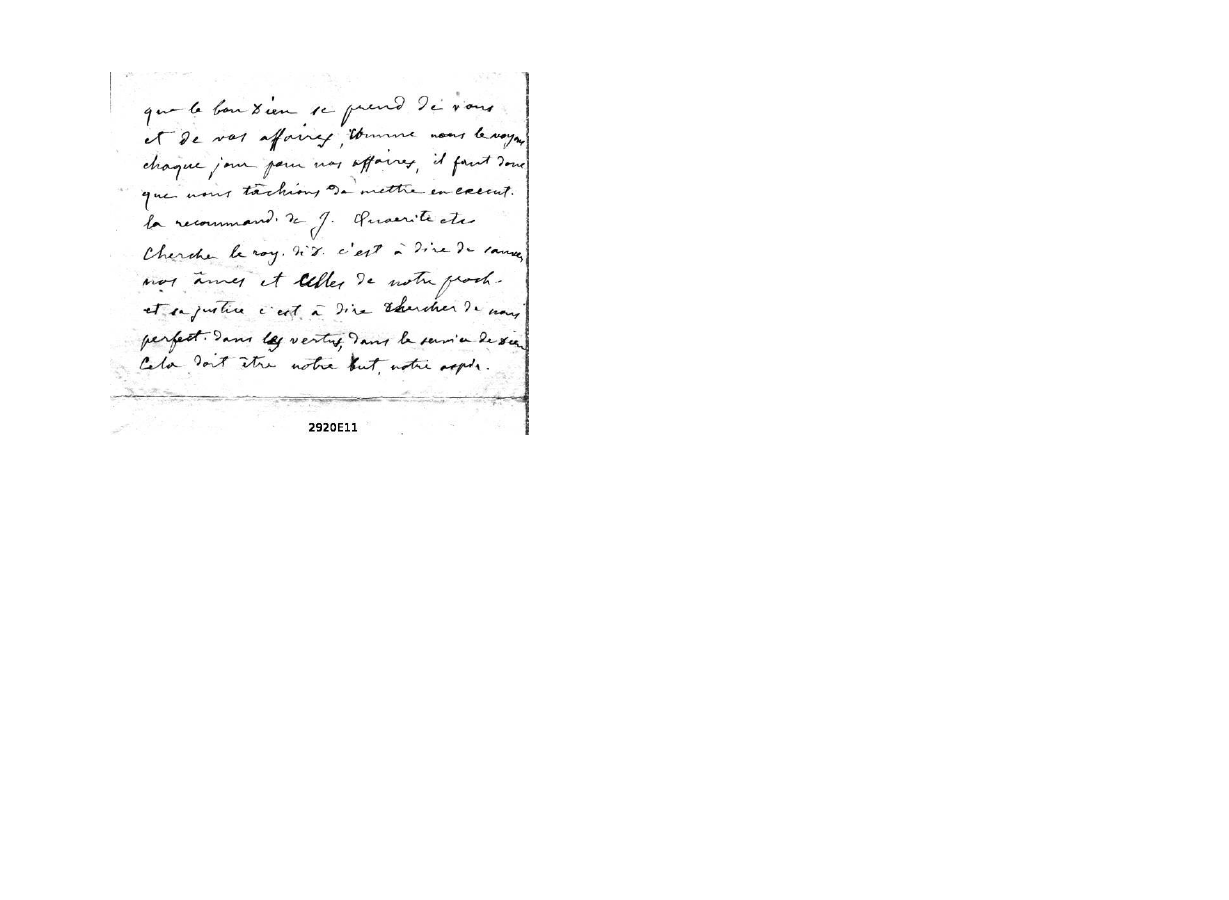 que le bon Dieu se prend de vous
et de vos affaires, comme nous le voyons
chaque jour pour nos affaires, il faut donc
que nous tâchions de mettre en execut.
la recommand. de J. Quaerite etc
Cherchez le roy. di D. c'est à dire de sauver
nos âmes et celles de notre proch.
et sa justice c'est à dire chercher de nous
perfect. dans les vertus, dans le service de Dieu
Cela doit être notre but, notre aspir.
2920E11